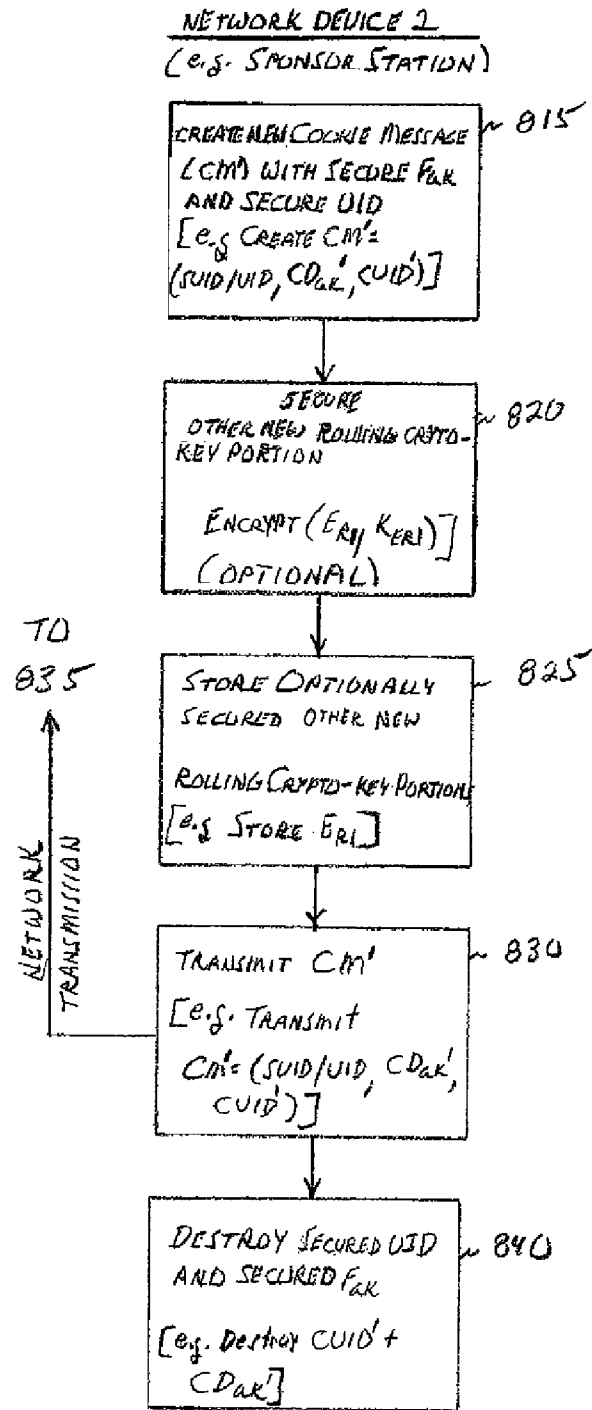 NETWORK DEVICE 2
(e.g. SPONSOR STATION)
CREATE NEW COOKIE MESSAGE
(CM') WITH SECURE Fak
AND SECURE UID
[e.g CREATE CM'=
(SUID/UID, CDak', CUID')]
815
SECURE
OTHER NEW ROLLING CRYPTO-
KEY PORTION
ENCRYPT (ER1, KER1)]
(OPTIONAL)
820
STORE OPTIONALLY
SECURED OTHER NEW
ROLLING CRYPTO-KEY PORTIONS
[e.g STORE ER1]
825
TO
835
NETWORK
TRANSMISSION
TRANSMIT CM'
[e.g. TRANSMIT
CM'= (SUID/UID, CDak',
CUID')]
830
DESTROY SECURED UID
AND SECURED Fak
[e.g. Destroy CUID' +
CDak']
840